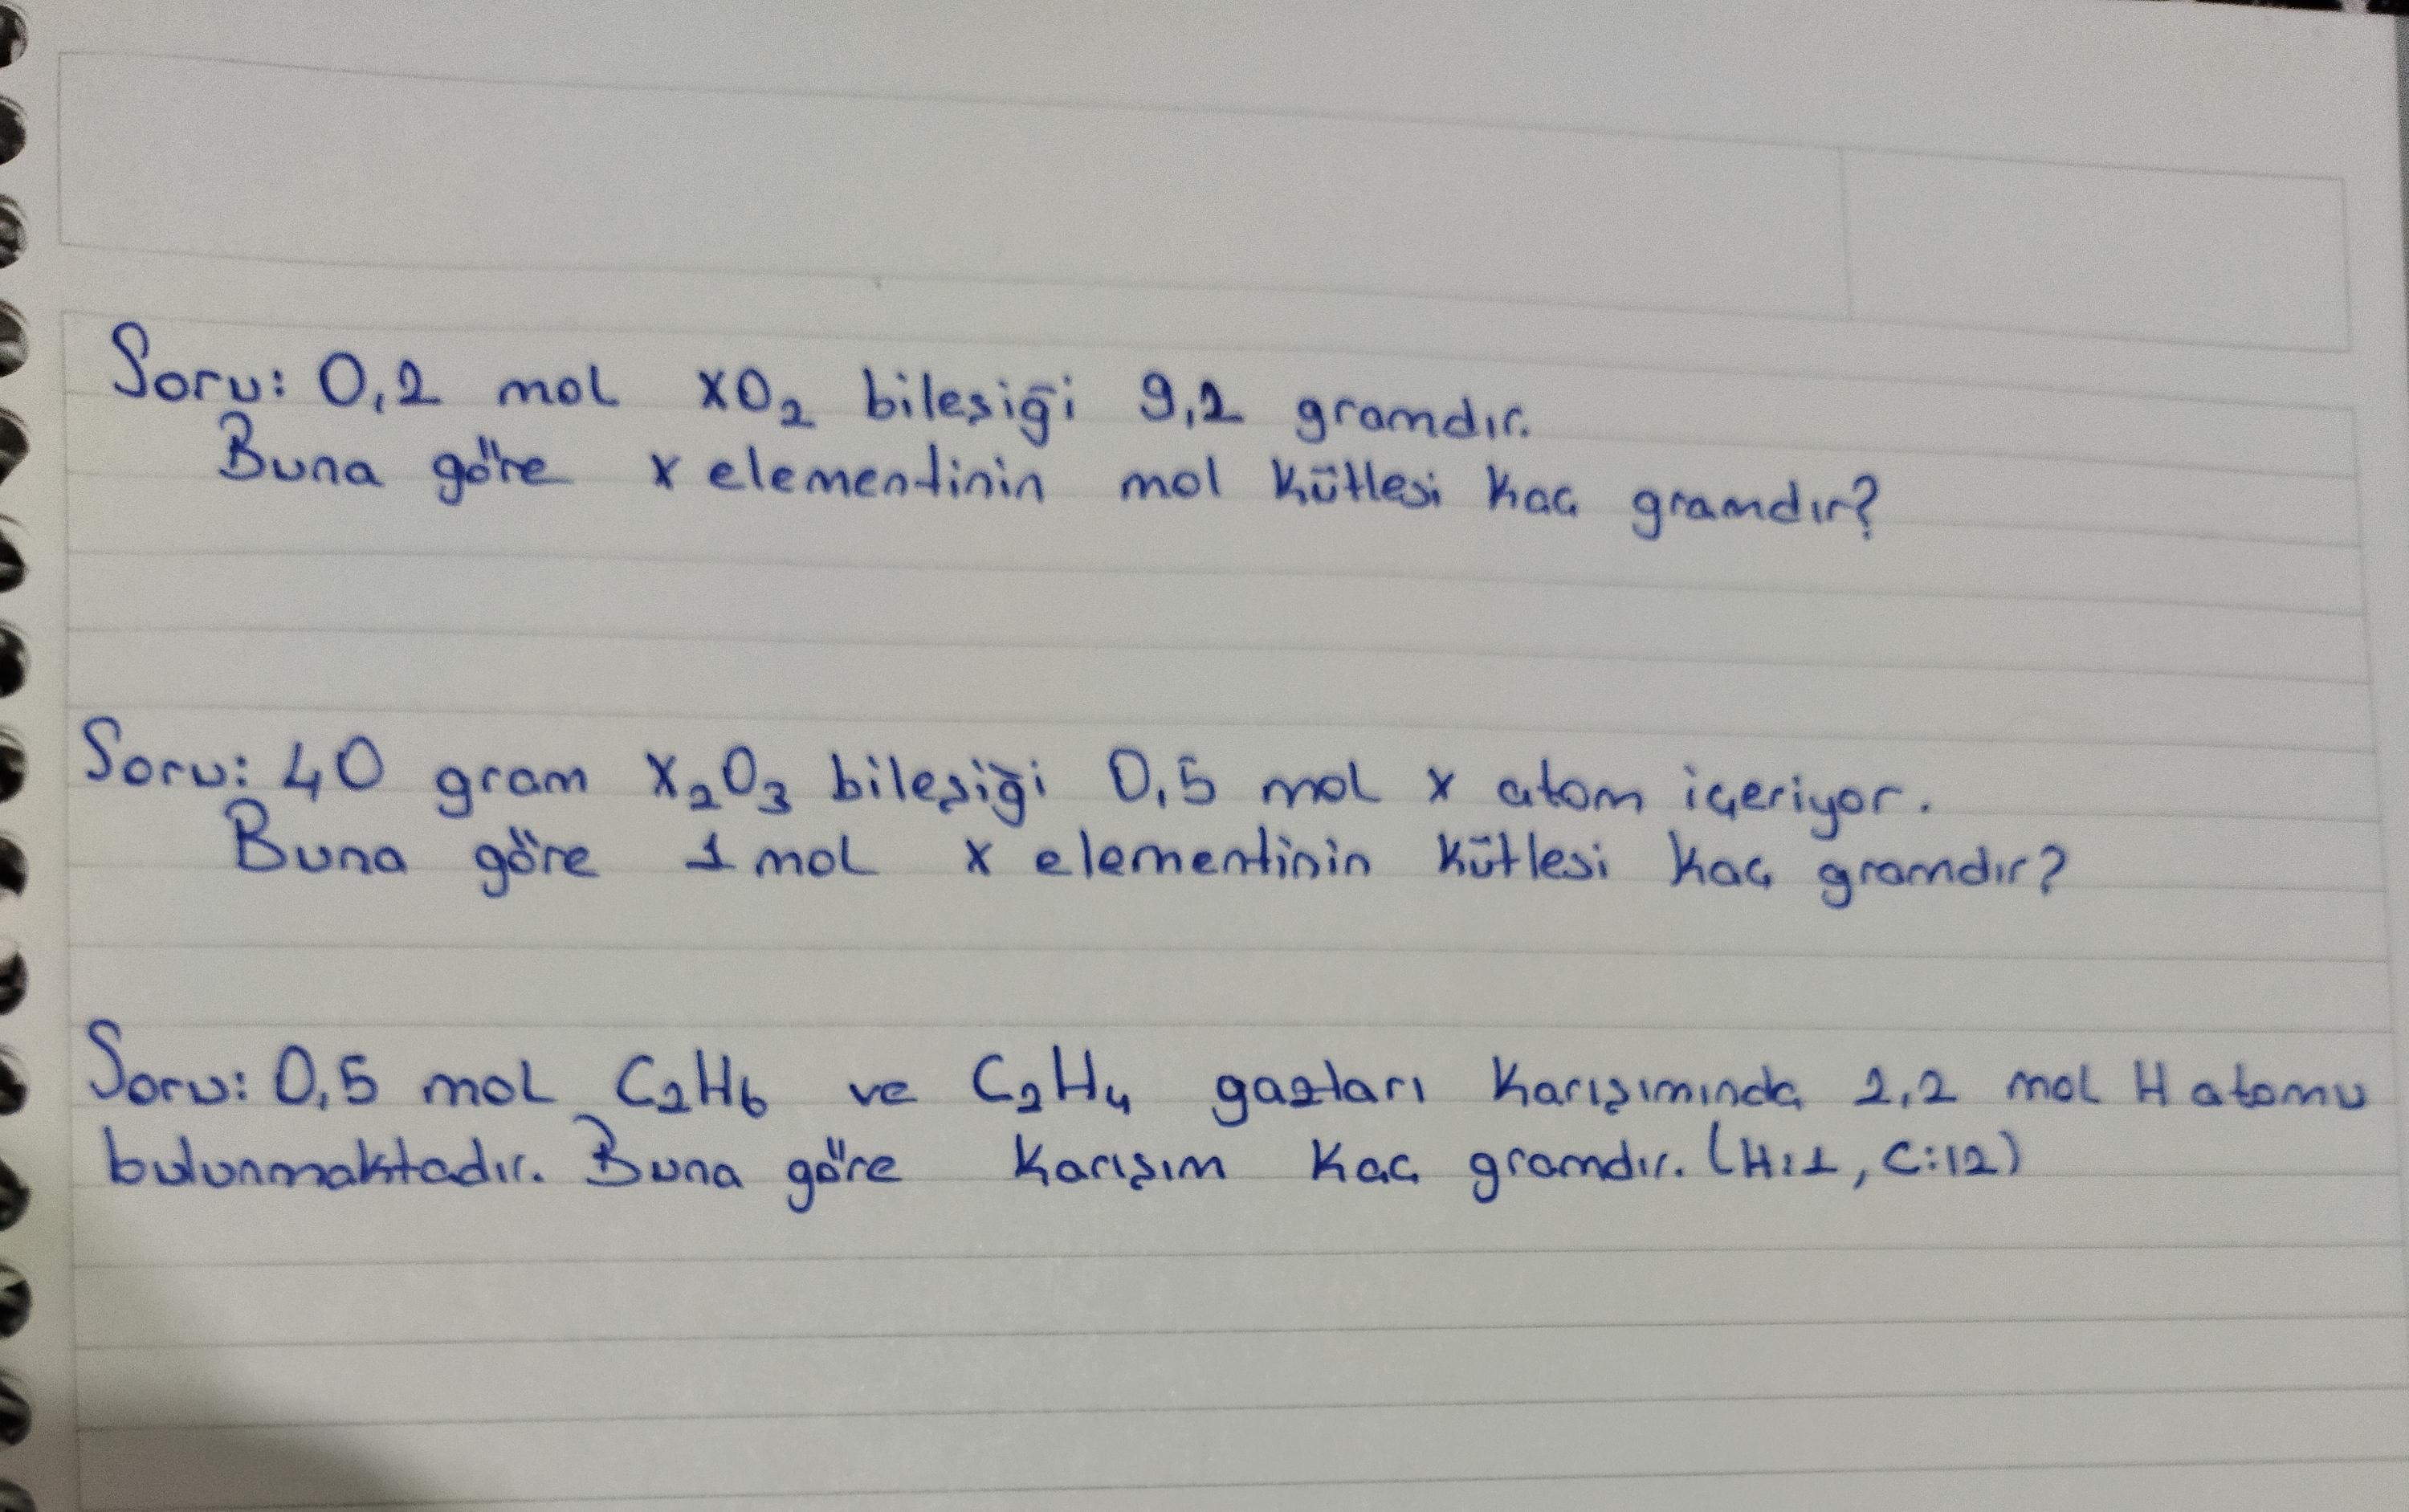 Soru: 0,2 mol XO₂ bileşiği 9,2 gramdır.
Buna göre x elementinin mol kütlesi kaç gramdır?
Soru: 40 gram X₂O₃ bileşiği 0,5 mol x atom içeriyor.
Buna göre 1 mol x elementinin kütlesi kaç gramdır?
Soru: 0,5 mol C₂H₆ ve C₂H₄ gazları karışımında 2,2 mol H atomu
bulunmaktadır. Buna göre karışım kaç gramdır. (H:1, C:12)